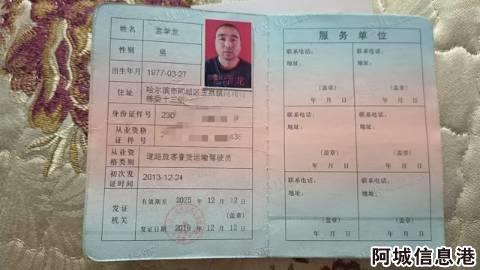 姓名
性别 男
出生年月 1977-03-27
住址 哈尔滨市阿城区
身份证件号 230
从业资格
证件号
从业资格类别 道路旅客普货运输驾驶员
初次发证时间 2013-12-24
发证机关
有效期至 2025 年 12 月 12 日
(盖章)
发证日期 2019 年 12 月 12 日
服务单位
联系电话: 联系电话:
地址: 地址:
(盖章) (盖章)
年 月 日 年 月 日
联系电话: 联系电话:
地址: 地址:
(盖章) (盖章)
年 月 日 年 月 日
联系电话: 联系电话:
地址: 地址:
(盖章) (盖章)
年 月 日 年 月 日
阿城信息港